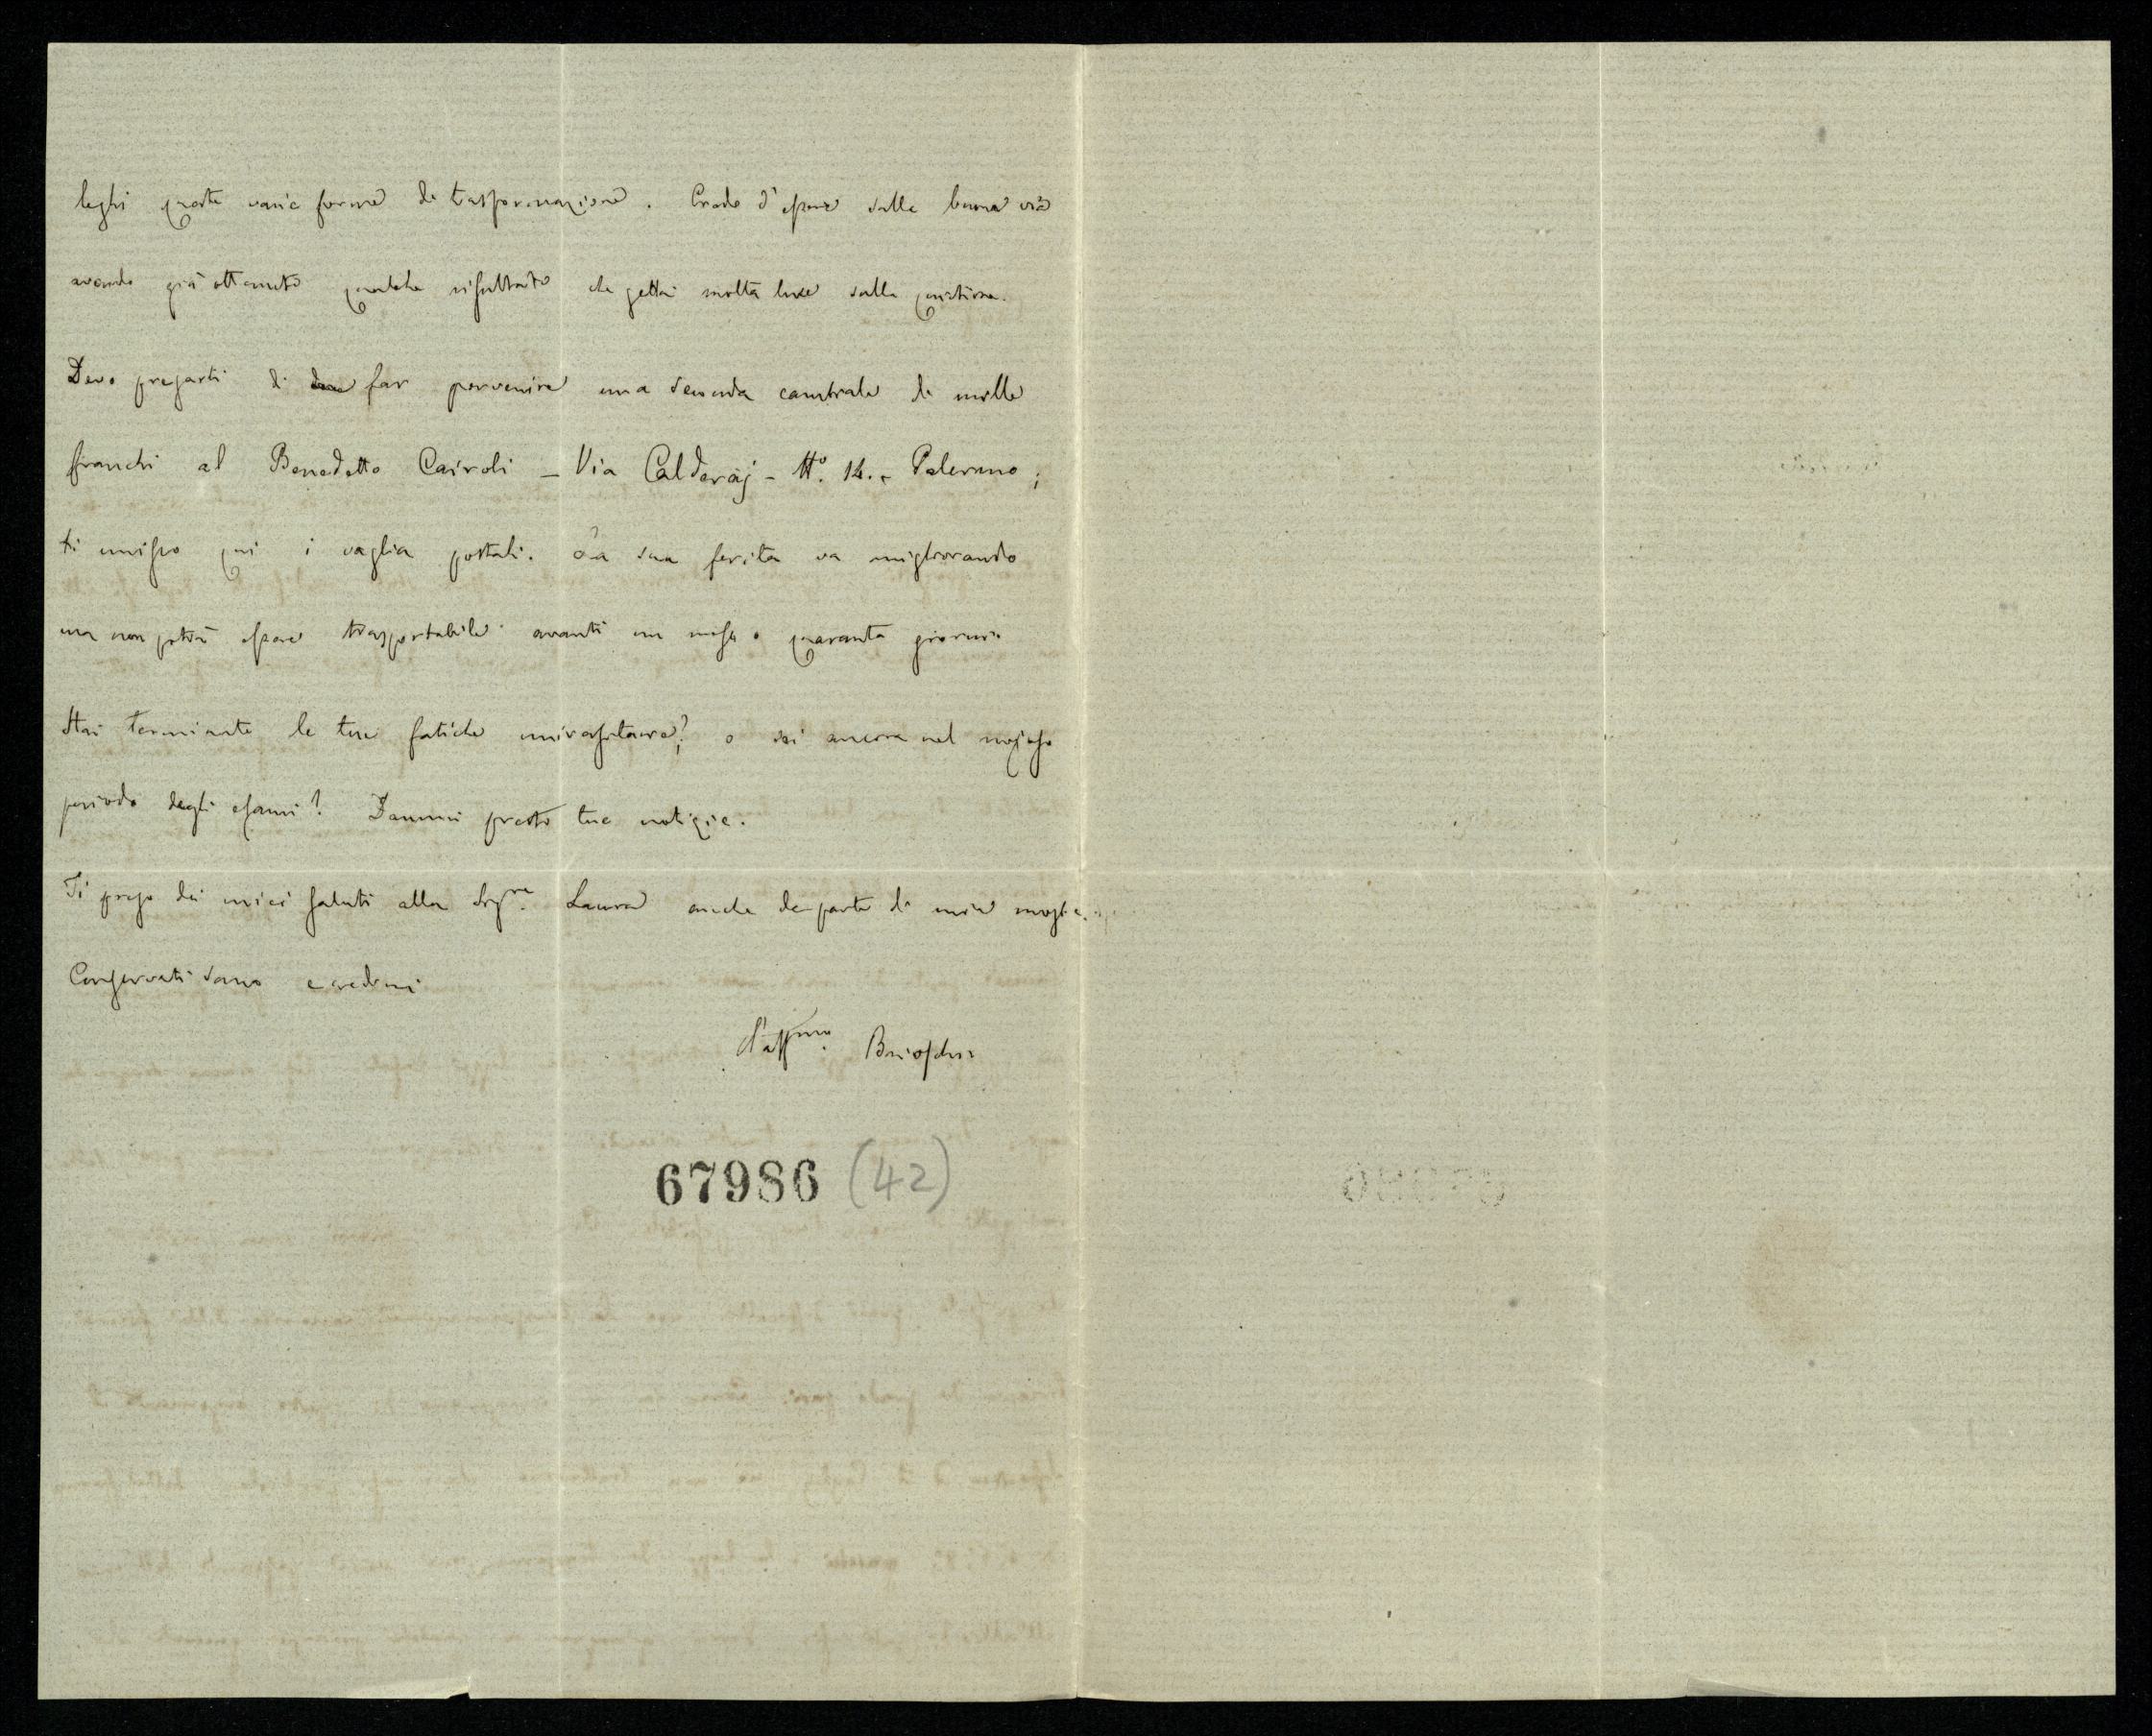 leghi queste varie forme di trasformazione. Credo d'essere sulla buona via
avendo già ottenuto qualche risultato che getta molta luce sulla quistione.
Devo pregarti di far pervenire una seconda cambiale di mille
franchi al Benedetto Cairoli – Via Calderaj – N.º 14. – Palermo;
ti unisco qui i vaglia postali. La sua ferita va migliorando
ma non potrà essere trasportabile avanti un mese o quaranta giorni.
Hai terminate le tue fatiche universitarie?; o sei ancora nel nojoso
periodo degli esami? Dammi presto tue notizie.
Ti prego dei miei saluti alla Sigra. Laura anche da parte di mia moglie.
Conservati sano e credimi
l'affmo. Brioschi
67986 (42)